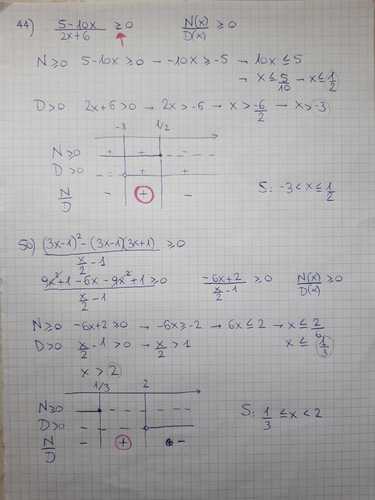 44) (5-10x)/(2x+6) ≥0    N(x)/D(x) ≥0
N≥0  5-10x≥0 → -10x≥-5 → 10x≤5
→ x≤5/10 → x≤1/2
D>0  2x+6>0 → 2x>-6 → x>-6/2 → x>-3
-3  1/2
N≥0  +  +  -
D>0  -  +  +
N/D  -  +  -    S: -3<x≤1/2
50) ((3x-1)²-(3x-1)(3x+1))/(x/2-1) ≥0
(9x²+1-6x-9x²+1)/(x/2-1) ≥0    (-6x+2)/(x/2-1) ≥0    N(x)/D(x) ≥0
N≥0  -6x+2≥0 → -6x≥-2 → 6x≤2 → x≤2/6
D>0  x/2-1>0 → x/2>1    x≤1/3
x>2
1/3  2
N≥0
D>0    S: 1/3≤x<2
N/D  -  +  -